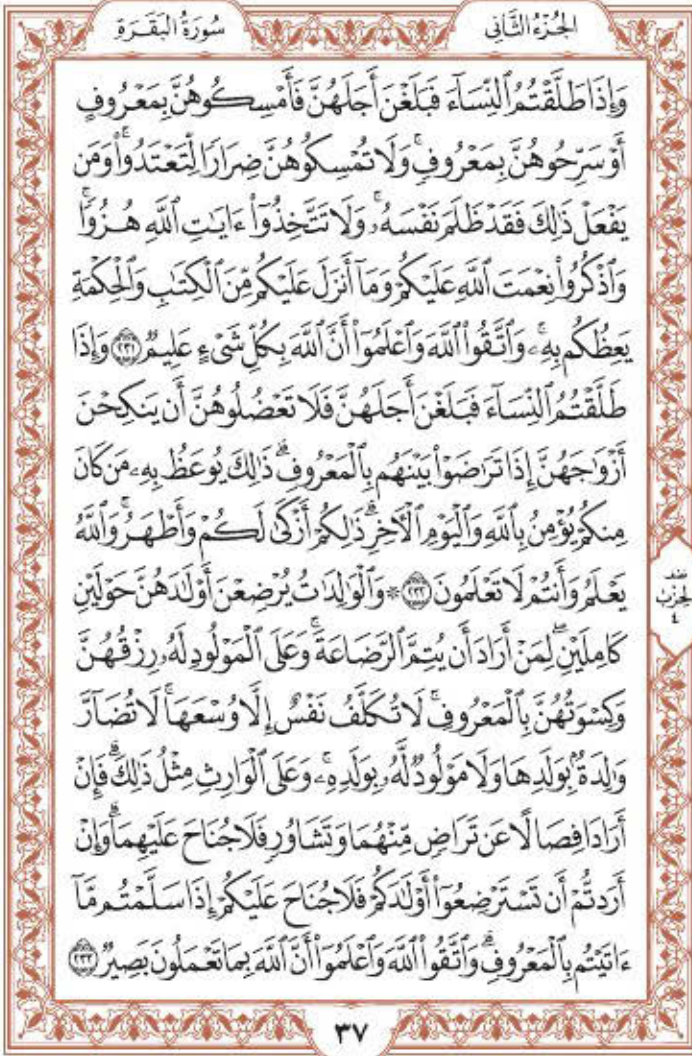 سُورَةُ البَقَرَةِ
الجُزْءُ الثَّانِي
وَإِذَا طَلَّقْتُمُ ٱلنِّسَآءَ فَبَلَغْنَ أَجَلَهُنَّ فَأَمْسِكُوهُنَّ بِمَعْرُوفٍ
أَوْ سَرِّحُوهُنَّ بِمَعْرُوفٖۚ وَلَا تُمْسِكُوهُنَّ ضِرَارٗا لِّتَعْتَدُواْۚ وَمَن
يَفْعَلْ ذَٰلِكَ فَقَدْ ظَلَمَ نَفْسَهُۥۚ وَلَا تَتَّخِذُوٓاْ ءَايَٰتِ ٱللَّهِ هُزُوٗاۚ
وَٱذْكُرُواْ نِعْمَتَ ٱللَّهِ عَلَيْكُمْ وَمَآ أَنزَلَ عَلَيْكُم مِّنَ ٱلْكِتَٰبِ وَٱلْحِكْمَةِ
يَعِظُكُم بِهِۦۚ وَٱتَّقُواْ ٱللَّهَ وَٱعْلَمُوٓاْ أَنَّ ٱللَّهَ بِكُلِّ شَيْءٍ عَلِيمٞ ٢٣١ وَإِذَا
طَلَّقْتُمُ ٱلنِّسَآءَ فَبَلَغْنَ أَجَلَهُنَّ فَلَا تَعْضُلُوهُنَّ أَن يَنكِحْنَ
أَزْوَٰجَهُنَّ إِذَا تَرَٰضَوْاْ بَيْنَهُم بِٱلْمَعْرُوفِۗ ذَٰلِكَ يُوعَظُ بِهِۦ مَن كَانَ
مِنكُمْ يُؤْمِنُ بِٱللَّهِ وَٱلْيَوْمِ ٱلْأٓخِرِۗ ذَٰلِكُمْ أَزْكَىٰ لَكُمْ وَأَطْهَرُۚ وَٱللَّهُ
يَعْلَمُ وَأَنتُمْ لَا تَعْلَمُونَ ٢٣٢ ۞ وَٱلْوَٰلِدَٰتُ يُرْضِعْنَ أَوْلَٰدَهُنَّ حَوْلَيْنِ
كَامِلَيْنِۖ لِمَنْ أَرَادَ أَن يُتِمَّ ٱلرَّضَاعَةَۚ وَعَلَى ٱلْمَوْلُودِ لَهُۥ رِزْقُهُنَّ
وَكِسْوَتُهُنَّ بِٱلْمَعْرُوفِۚ لَا تُكَلَّفُ نَفْسٌ إِلَّا وُسْعَهَاۚ لَا تُضَآرَّ
وَٰلِدَةُۢ بِوَلَدِهَا وَلَا مَوْلُودٞ لَّهُۥ بِوَلَدِهِۦۚ وَعَلَى ٱلْوَارِثِ مِثْلُ ذَٰلِكَۗ فَإِنْ
أَرَادَا فِصَالًا عَن تَرَاضٖ مِّنْهُمَا وَتَشَاوُرٖ فَلَا جُنَاحَ عَلَيْهِمَاۗ وَإِنْ
أَرَدتُّمْ أَن تَسْتَرْضِعُوٓاْ أَوْلَٰدَكُمْ فَلَا جُنَاحَ عَلَيْكُمْ إِذَا سَلَّمْتُم مَّآ
ءَاتَيْتُم بِٱلْمَعْرُوفِۗ وَٱتَّقُواْ ٱللَّهَ وَٱعْلَمُوٓاْ أَنَّ ٱللَّهَ بِمَا تَعْمَلُونَ بَصِيرٞ ٢٣٣
٣٧
الحِزْبِ
٤